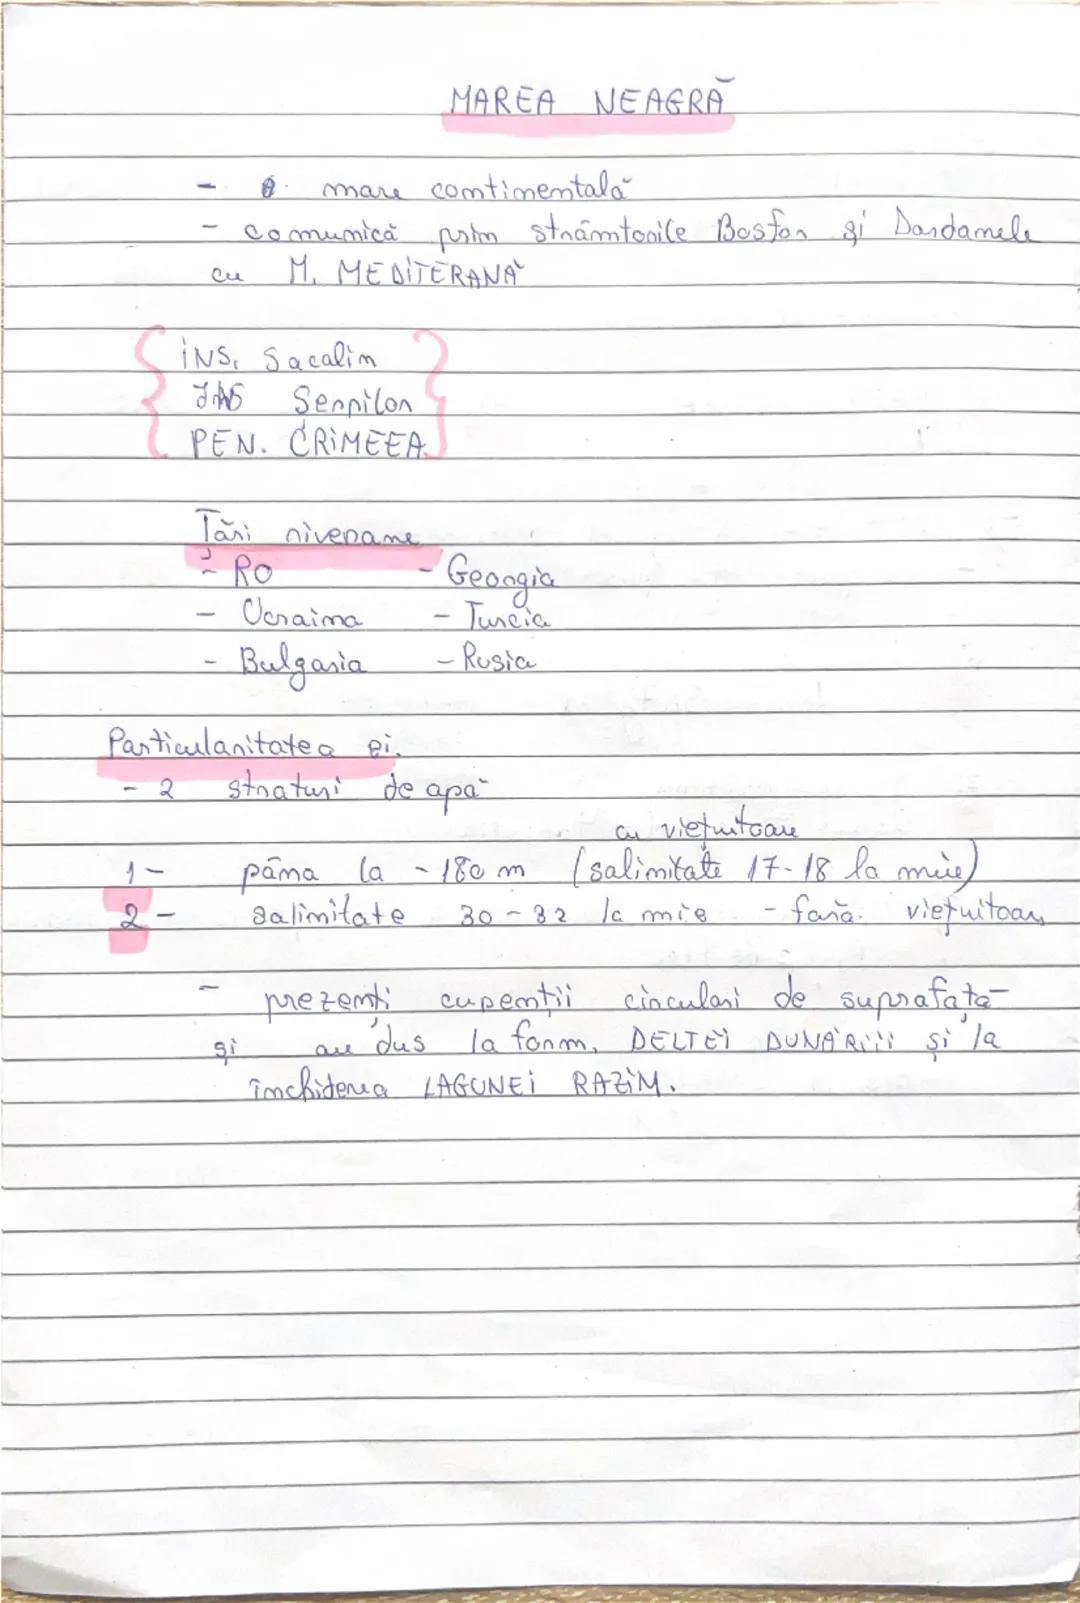 MAREA NEAGRĂ
- mare continentală
- comunică prin strâmtorile Bosfor și Dardanele
cu M. MEDITERANĂ
INS. Sacalin
INS Serpilor
PEN. CRIMEEA
Țări riverane
- RO - Georgia
- Ucraina - Turcia
- Bulgaria - Rusia
Particularitatea ei.
- 2 straturi de apă
cu viețuitoare
1 - pâna la -180 m (salinitate 17-18 la mie)
2 - salinitate 30-32 la mie - fară viețuitoare
- prezenți curenții circulari de suprafață
și au dus la form. DELTEI DUNĂRIII și la
închiderea LAGUNEI RAZIM.